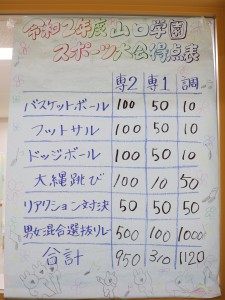 令和2年度山口学園
スポーツ大会得点表
専2 専1 調
バスケットボール 100 50 10
フットサル 100 50 10
ドッジボール 100 50 10
大縄跳び 100 10 50
リアクション対決 50 50 50
男女混合選抜リレー 500 100 1000
合計 950 310 1120